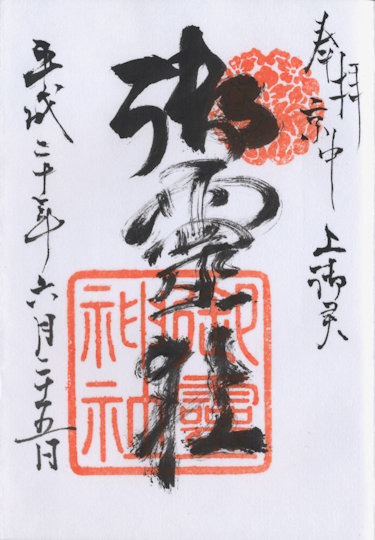 奉拝
京中 上御灵
御霊社
御靈
神社
平成二十年六月二十五日